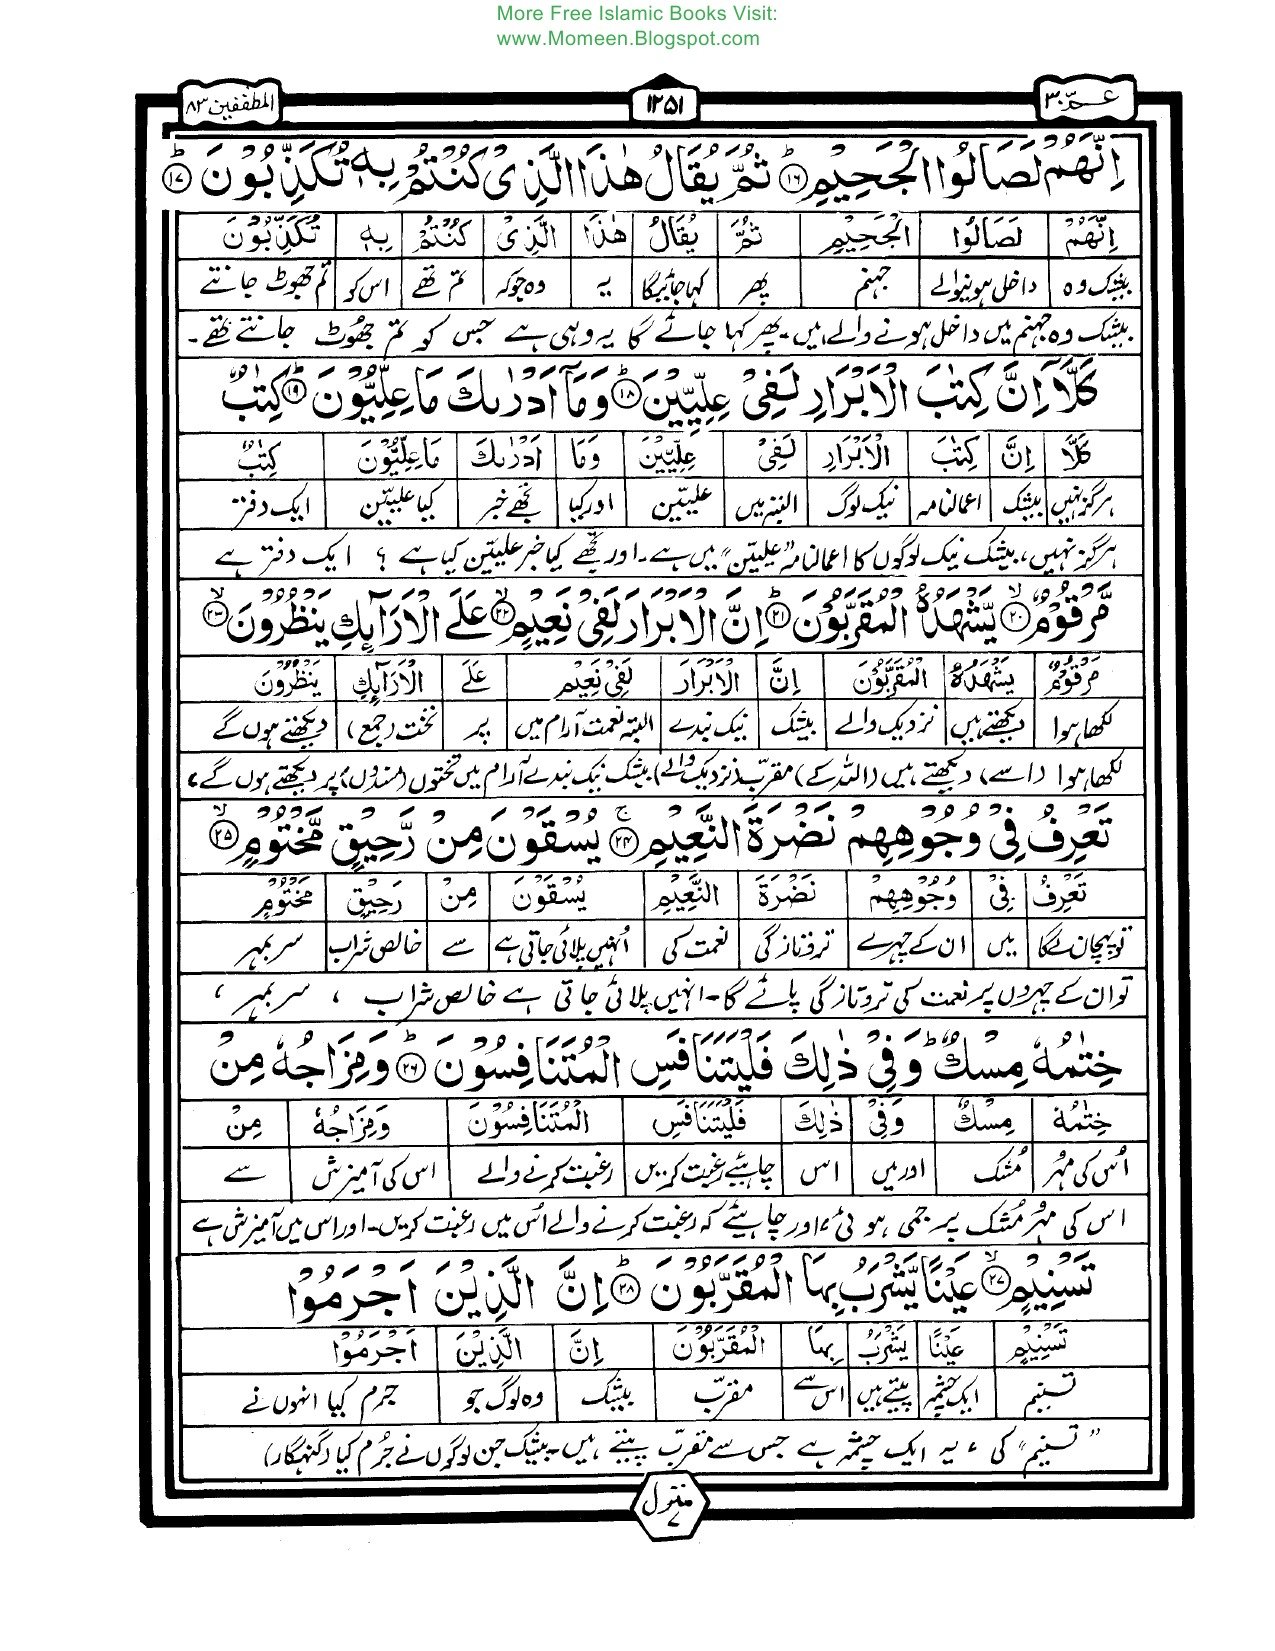 More Free Islamic Books Visit:
www.Momeen.Blogspot.com
عمّ ۳۰
۱۲۵۱
المطففین ۸۳
اِنَّهُمْ لَصَالُوا الْجَحِيْمِ ؕ۱۶ ثُمَّ يُقَالُ هٰذَا الَّذِىْ كُنْتُمْ بِهٖ تُكَذِّبُوْنَ ؕ۱۷
اِنَّهُمْ لَصَالُوا الْجَحِيْمِ ثُمَّ يُقَالُ هٰذَا الَّذِىْ كُنْتُمْ بِهٖ تُكَذِّبُوْنَ
بیشک وہ داخل ہونیوالے جہنم پھر کہا جائیگا یہ وہ جوکہ تم تھے اس کو تم جھوٹ جانتے
بیشک وہ جہنم میں داخل ہونے والے ہیں۔ پھر کہا جائے گا یہ وہی ہے جس کو تم جھوٹ جانتے تھے۔
كَلَّاۤ اِنَّ كِتٰبَ الْاَبْرَارِ لَفِىْ عِلِّيِّيْنَ ؕ۱۸ وَمَاۤ اَدْرٰىكَ مَا عِلِّيُّوْنَ ؕ۱۹ كِتٰبٌ
كَلَّاۤ اِنَّ كِتٰبَ الْاَبْرَارِ لَفِىْ عِلِّيِّيْنَ وَمَاۤ اَدْرٰىكَ مَا عِلِّيُّوْنَ كِتٰبٌ
ہرگز نہیں بیشک اعمالنامہ نیک لوگ البتہ میں علیین اور کیا تجھے خبر کیا علیین ایک دفتر
ہرگز نہیں، بیشک نیک لوگوں کا اعمالنامہ "علیین" میں ہے۔ اور تجھے کیا خبر علیین کیا ہے ؟ ایک دفتر ہے
مَّرْقُوْمٌ ۙ۲۰ يَّشْهَدُهُ الْمُقَرَّبُوْنَ ؕ۲۱ اِنَّ الْاَبْرَارَ لَفِىْ نَعِيْمٍ ۙ۲۲ عَلَى الْاَرَآئِكِ يَنْظُرُوْنَ ۙ۲۳
مَرْقُوْمٌ يَشْهَدُهُ الْمُقَرَّبُوْنَ اِنَّ الْاَبْرَارَ لَفِىْ نَعِيْمٍ عَلَى الْاَرَآئِكِ يَنْظُرُوْنَ
لکھا ہوا دیکھتے ہیں نزدیک والے بیشک نیک بندے البتہ نعمت آرام میں پر تخت (جمع) دیکھتے ہوں گے
لکھا ہوا (اسے) دیکھتے ہیں (اللہ کے) مقرب (نزدیک والے) بیشک نیک بندے آرام میں تختوں (مسندوں) پر دیکھتے ہوں گے،
تَعْرِفُ فِىْ وُجُوْهِهِمْ نَضْرَةَ النَّعِيْمِ ۚ۲۴ يُسْقَوْنَ مِنْ رَّحِيْقٍ مَّخْتُوْمٍ ۙ۲۵
تَعْرِفُ فِىْ وُجُوْهِهِمْ نَضْرَةَ النَّعِيْمِ يُسْقَوْنَ مِنْ رَحِيْقٍ مَخْتُوْمٍ
تو پہچان لے گا میں ان کے چہرے تروتازگی نعمت کی انہیں پلائی جاتی ہے سے خالص شراب سربمہر
تو ان کے چہروں پر نعمت کی تروتازگی پائے گا۔ انہیں پلائی جاتی ہے خالص شراب ، سربمہر ،
خِتٰمُهٗ مِسْكٌ ؕ وَفِىْ ذٰلِكَ فَلْيَتَنَافَسِ الْمُتَنَافِسُوْنَ ؕ۲۶ وَمِزَاجُهٗ مِنْ
خِتٰمُهٗ مِسْكٌ وَفِىْ ذٰلِكَ فَلْيَتَنَافَسِ الْمُتَنَافِسُوْنَ وَمِزَاجُهٗ مِنْ
اُس کی مُہر مُشک اور میں اس چاہیئے رغبت کریں رغبت کرنے والے اس کی آمیزش سے
اس کی مُہر مُشک پر جمی ہوئی، اور چاہیئے کہ رغبت کرنے والے اُس میں رغبت کریں۔ اور اس میں آمیزش ہے
تَسْنِيْمٍ ۙ۲۷ عَيْنًا يَّشْرَبُ بِهَا الْمُقَرَّبُوْنَ ؕ۲۸ اِنَّ الَّذِيْنَ اَجْرَمُوْا
تَسْنِيْمٍ عَيْنًا يَشْرَبُ بِهَا الْمُقَرَّبُوْنَ اِنَّ الَّذِيْنَ اَجْرَمُوْا
تسنیم ایک چشمہ پیتے ہیں اس سے مقرب بیشک وہ لوگ جو جرم کیا انہوں نے
"تسنیم" کی ، یہ ایک چشمہ ہے جس سے مقرب پیتے ہیں۔ بیشک جن لوگوں نے جُرم کیا (گنہگار)
منزل ۷